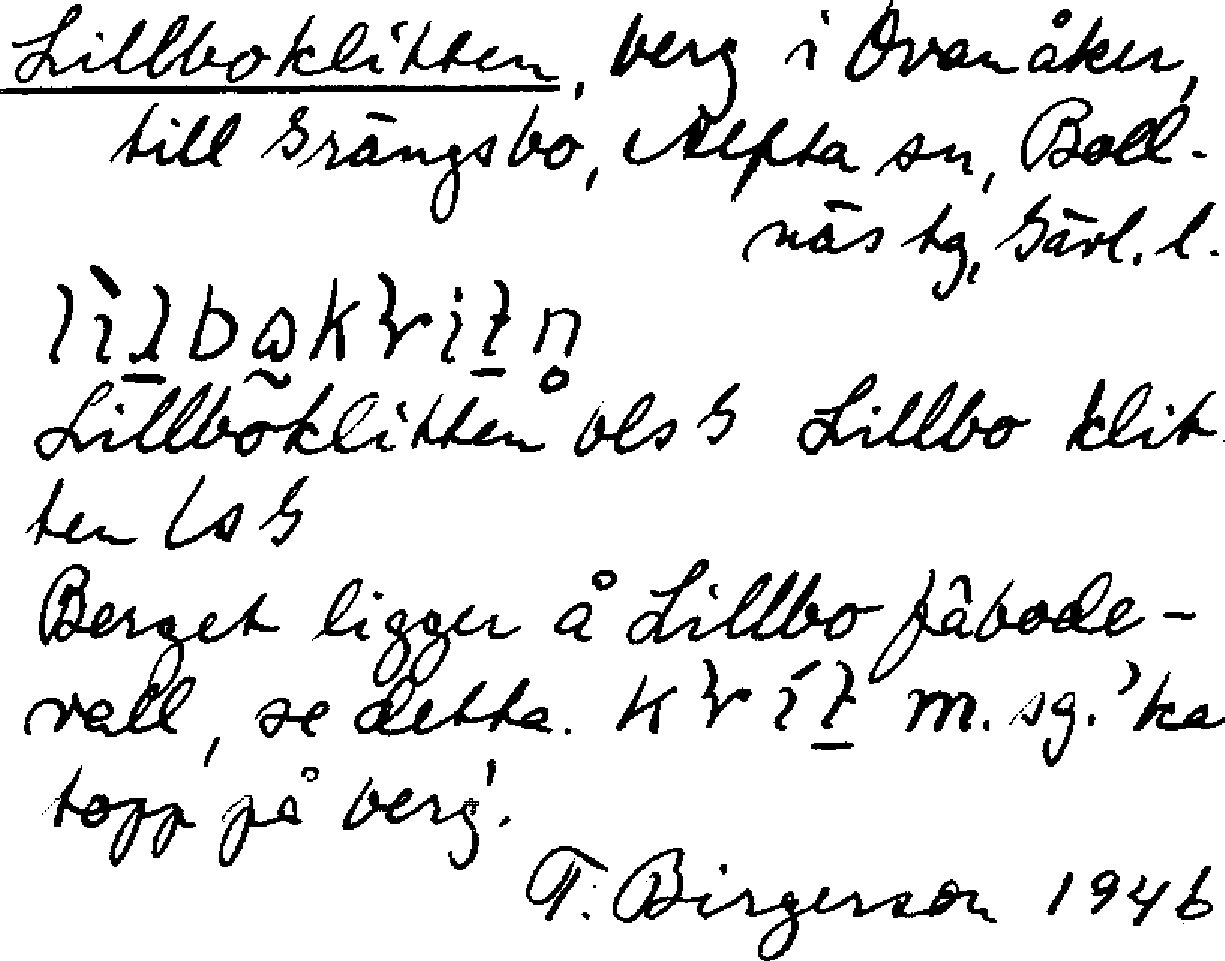 Lillboklitten, berg i Ovanåker,
till Grängsbo, Alfta sn, Boll-
näs tg, Gävl. l.
Lillboklitten bls G Lillbo klit-
ten Is G
Berget ligger å Lillbo fäbode-
vall, se detta. m. sg. 'ka
topp på berg'.
T. Birgerson 1946